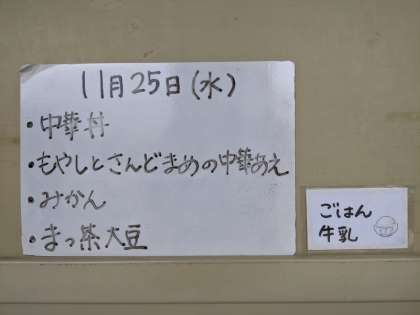 11月25日(水)
・中華丼
・もやしとさんどまめの中華あえ
・みかん
・まっ茶大豆
ごはん
牛乳